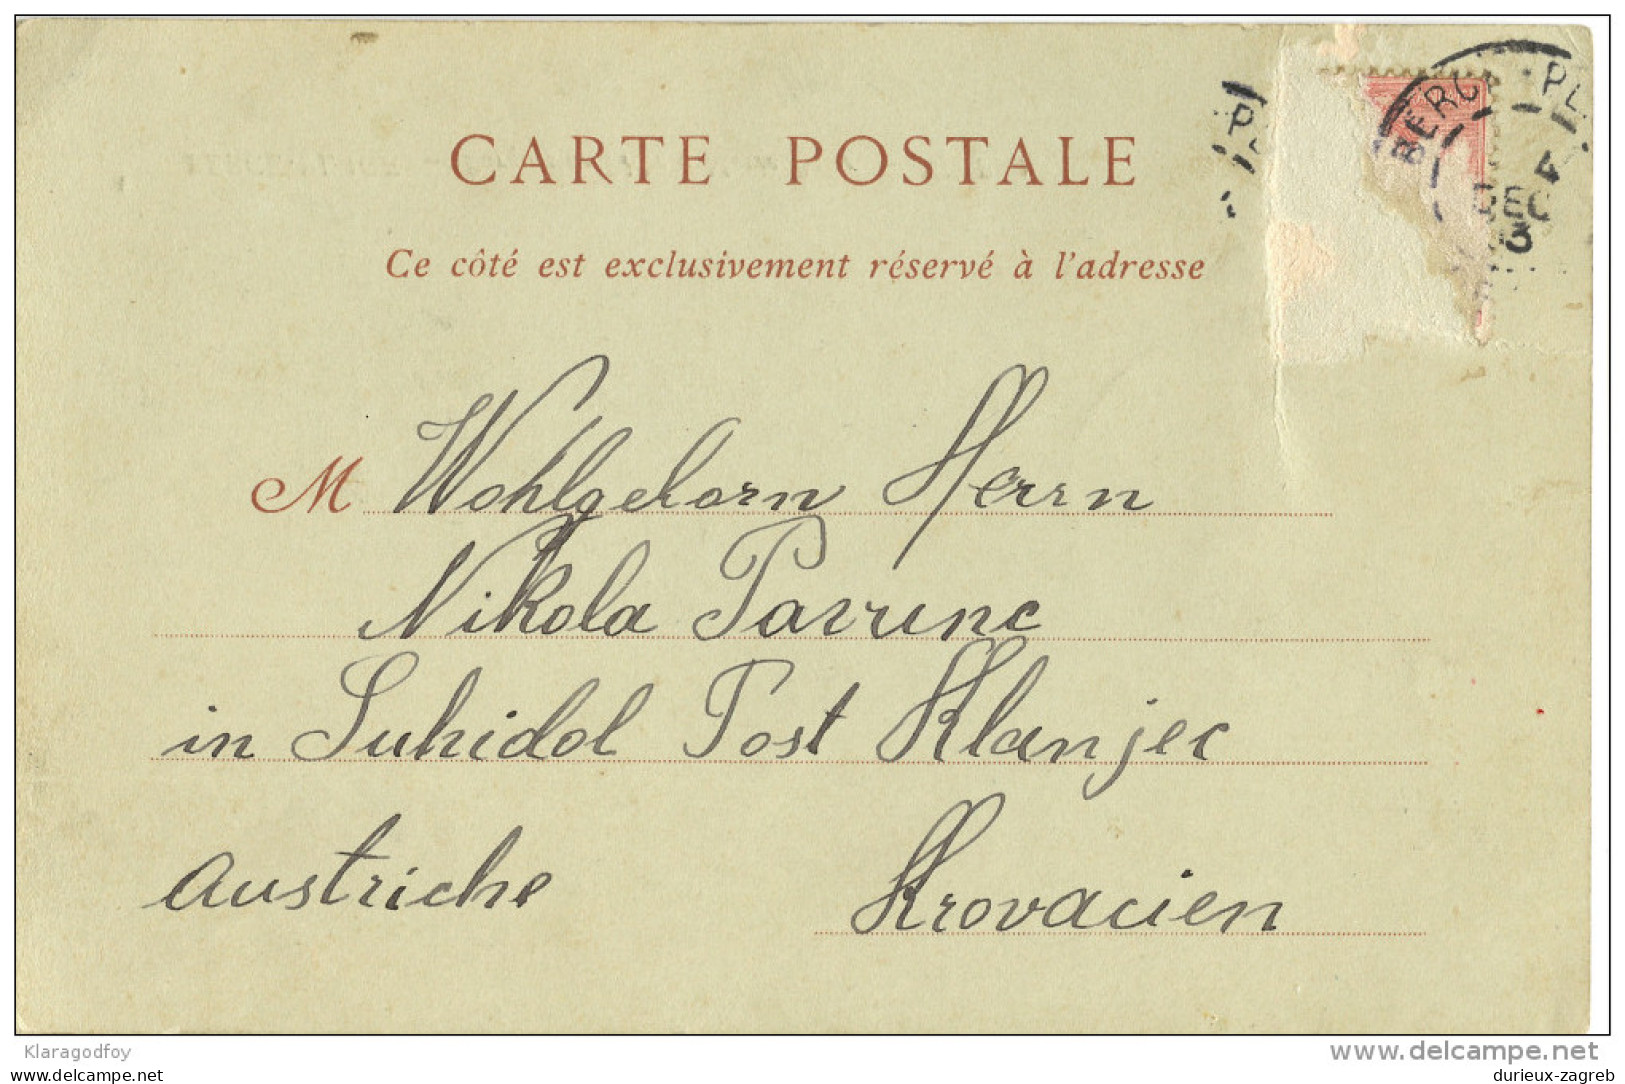 CARTE POSTALE
Ce côté est exclusivement réservé à l'adresse
BERC
DEC
M Wohlgeborn Herrn
Nikola
in Suhidol Post Klanjec
Austriche Krovacien
Klaragodfoy
www.delcampe.net
www.delcampe.com
durieux-zagreb